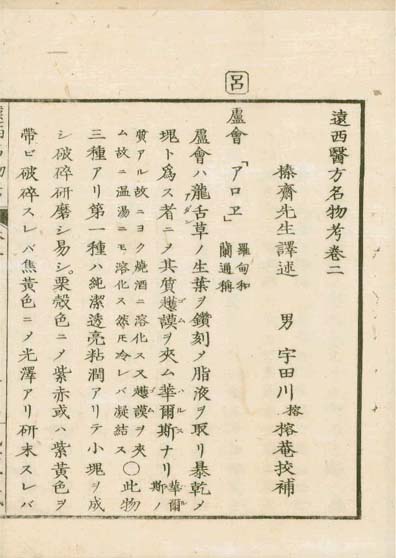 遠西醫方名物考卷二
榛齋先生譯述 男 宇田川榕 榕菴挍補
呂
盧會「アロヱ」羅甸和蘭通稱
盧會ハ瀧舌草ノ生葉ヲ鑽刻〆脂液ヲ取リ暴乾〆
塊ト爲ス者ニ〆其質護謨ヲ夾ム華爾斯ナリ華爾斯ノ
質アル故ニヨク焼酒ニ溶化ス又護謨ヲ夾ム故ニ温湯ニモ溶化ス然𪜈冷レバ凝結ス〇此物
三種アリ第一種ハ純潔透亮粘潤アリテ小塊ヲ成
シ破碎研磨シ易シ栗殻色ニ〆紫赤或ハ紫黄色ヲ
帶ビ破碎スレバ焦黄色ニ〆光澤アリ研末スレバ